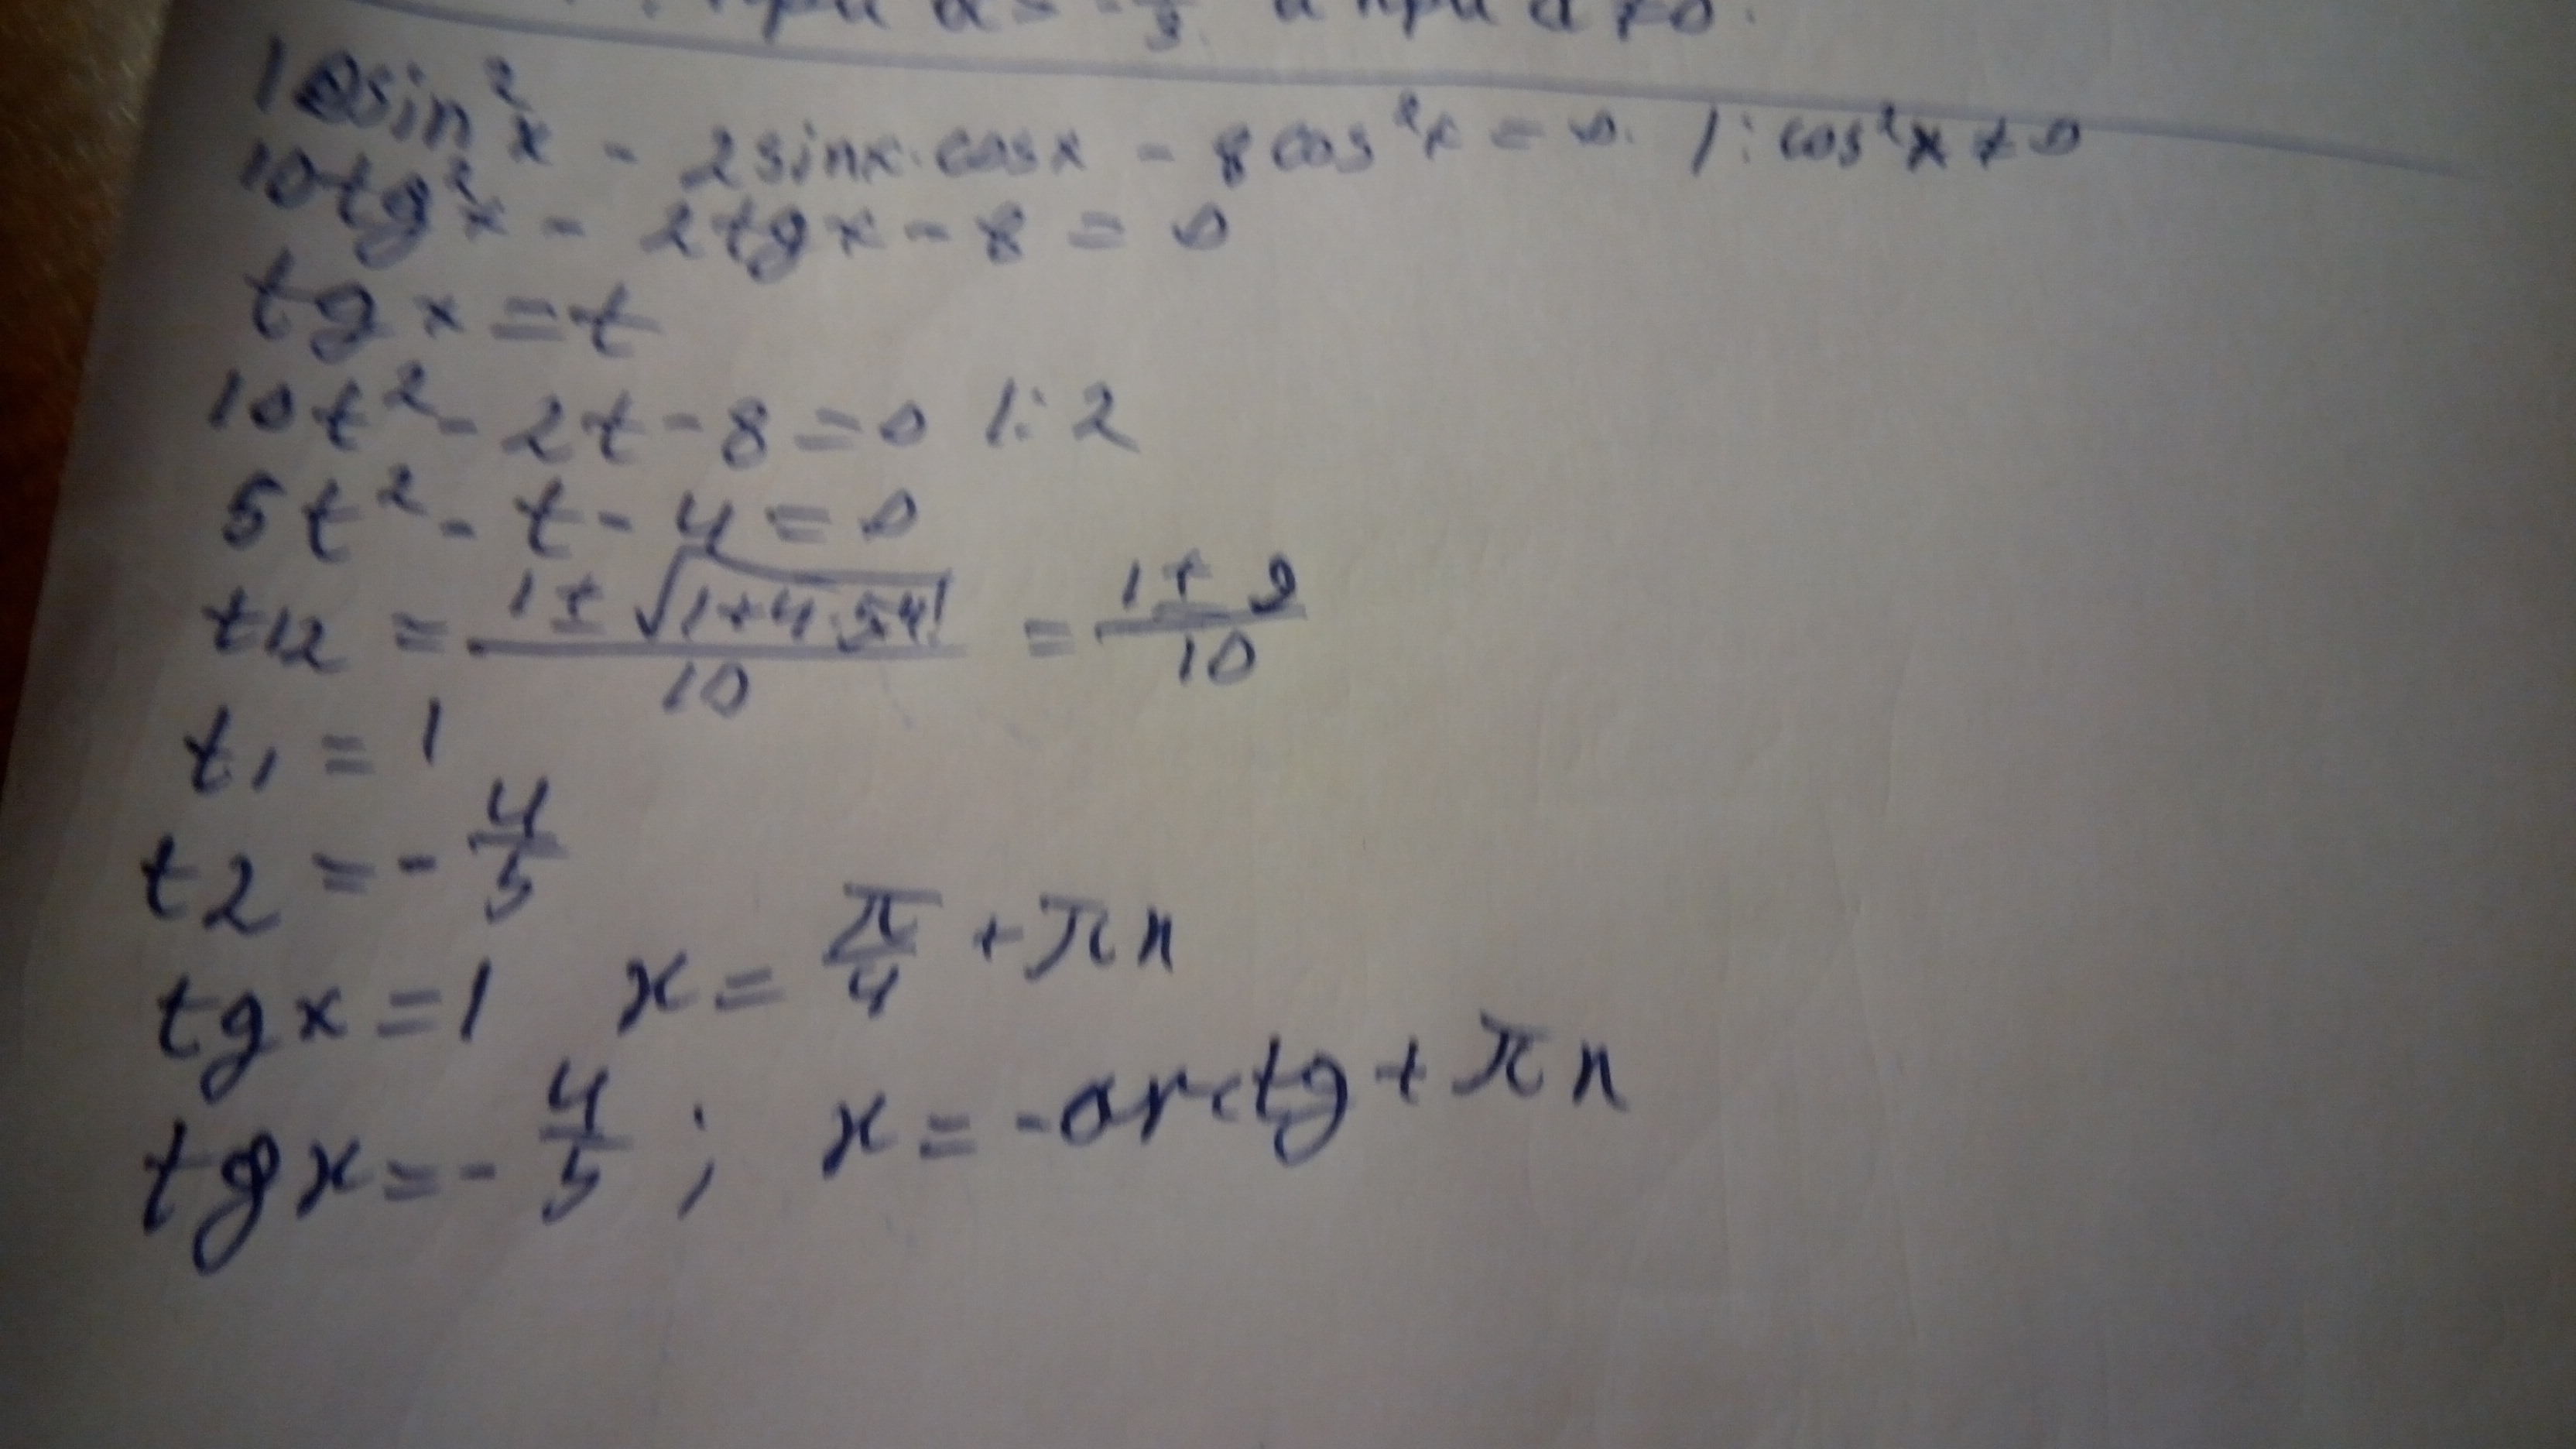 при a = - 1/3 и при a ≠ 0.
10sin²x - 2sinx·cosx - 8cos²x = 0. /: cos²x ≠ 0
10tg²x - 2tgx - 8 = 0
tgx = t
10t² - 2t - 8 = 0 /: 2
5t² - t - 4 = 0
t12 = (1 ± √(1+4·5·4))/10 = (1 ± 9)/10
t1 = 1
t2 = - 4/5
tgx = 1 x = π/4 + πn
tgx = - 4/5 ; x = -arctg + πn